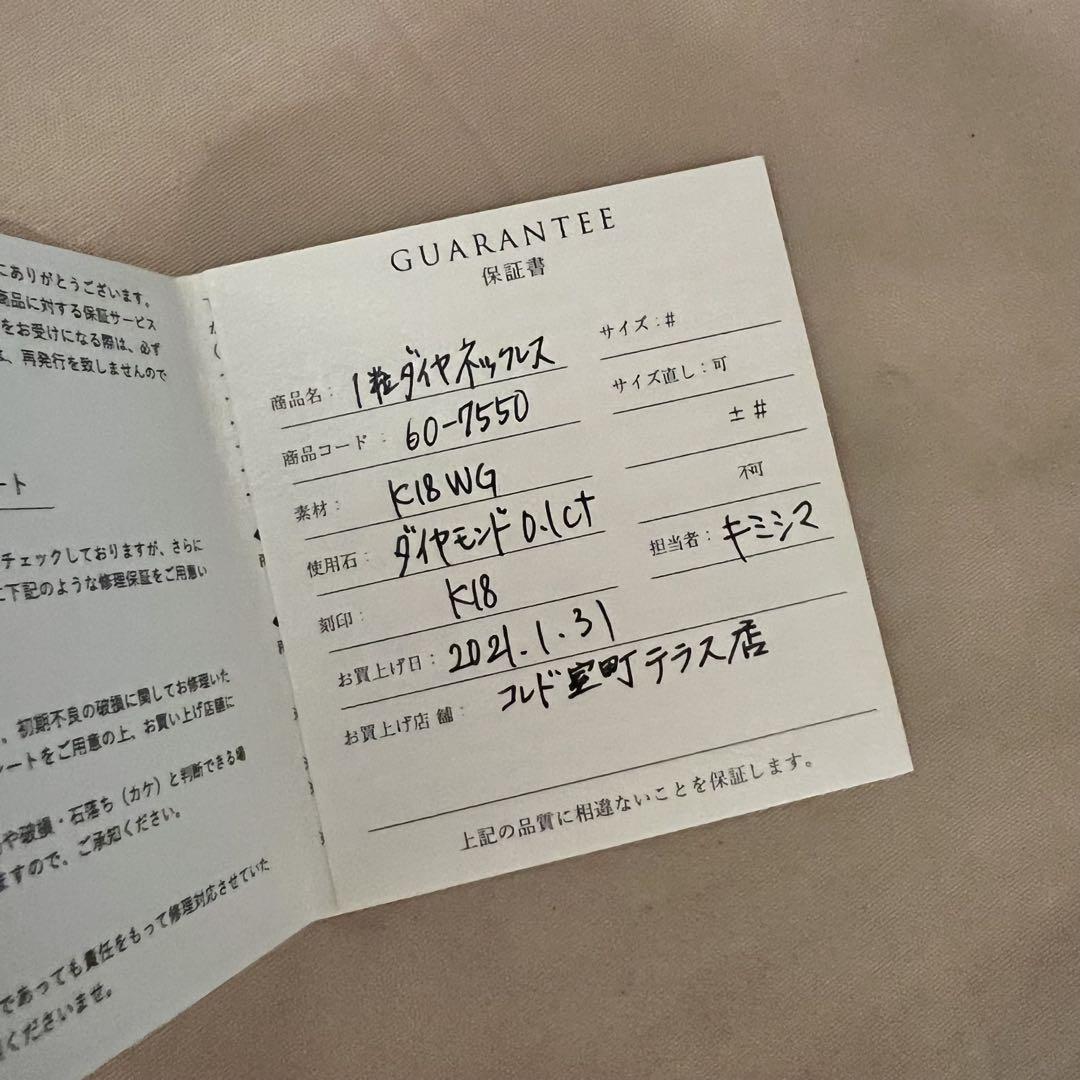 にありがとうございます。
商品に対する保証サービス
をお受けになる際は、必ず
、再発行を致しませんので
ート
チェックしておりますが、さらに
に下記のような修理保証をご用意い
、初期不良の破損に関してお修理いた
レートをご用意の上、お買い上げ店舗に
や破損・石落ち（カケ）と判断できる場
ますので、ご承知ください。
であっても責任をもって修理対応させていた
くださいませ。
GUARANTEE
保証書
商品名： 1粒ダイヤネックレス
商品コード： 60-7550
素材： K18WG
使用石： ダイヤモンド0.1ct
刻印： K18
お買上げ日： 2021.1.31
お買上げ店舗： コレド室町テラス店
サイズ：#
サイズ直し：可
±#
不可
担当者： キミシマ
上記の品質に相違ないことを保証します。